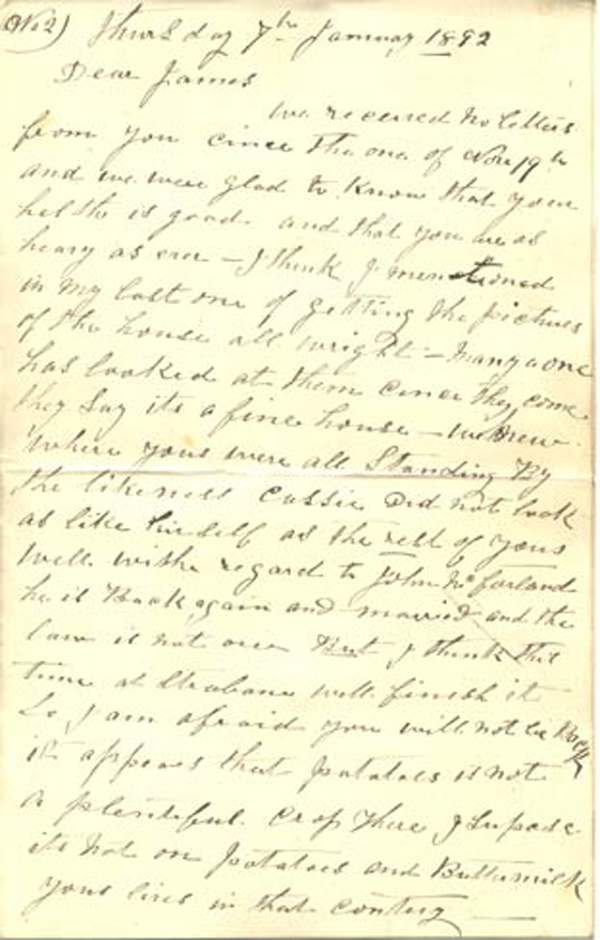 (No 2) Thursday 7th January 1892
Dear James
We received no letters
from you cince the one of Nov 19th
and we were glad to know that your
helth is good and that you are as
heavy as ever - I think I mentioned
in my last one of getting the pictures
of the house all wright - Many a one
has looked at them cince they come
they say its a fine house - we knew
where yous were all Standing By
the likeness Cassie Did not look
as like hirself as the rest of yous
Well withe regard to John McFarland
he is Back again and married and the
law is not over But I think this
time at Strabane will finish it
So I am afraid you will not be Back
it appears that potatoes is not
a plentiful crop there I Supose
its not on potatoes and Buttermilk
yous lives in that contery